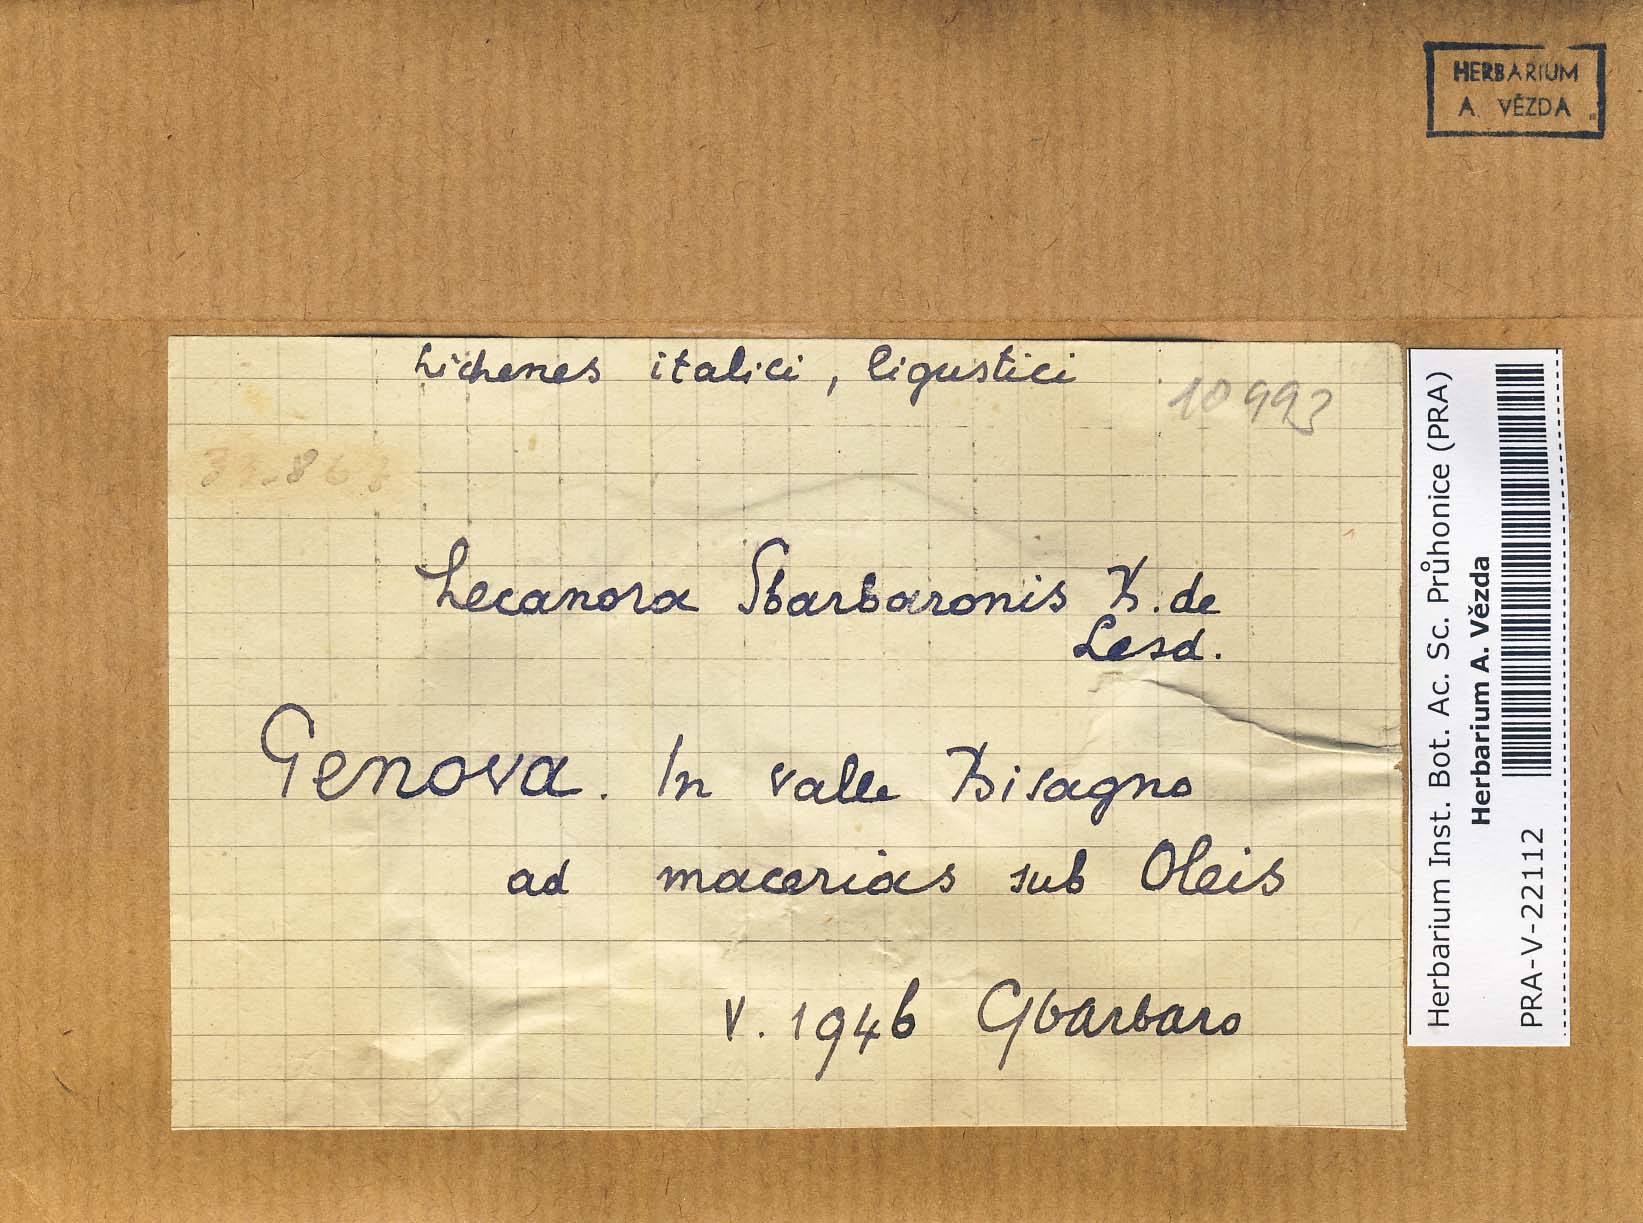 HERBARIUM
A. VĚZDA
Lichenes italici, ligustici
10993
Lecanora Sbarbaronis B. de
Lesd.
Genova. In valle Bisagno
ad macerias sub Oleis
V. 1946 Sbarbaro
Herbarium Inst. Bot. Ac. Sc. Průhonice (PRA)
Herbarium A. Vězda
PRA-V-22112